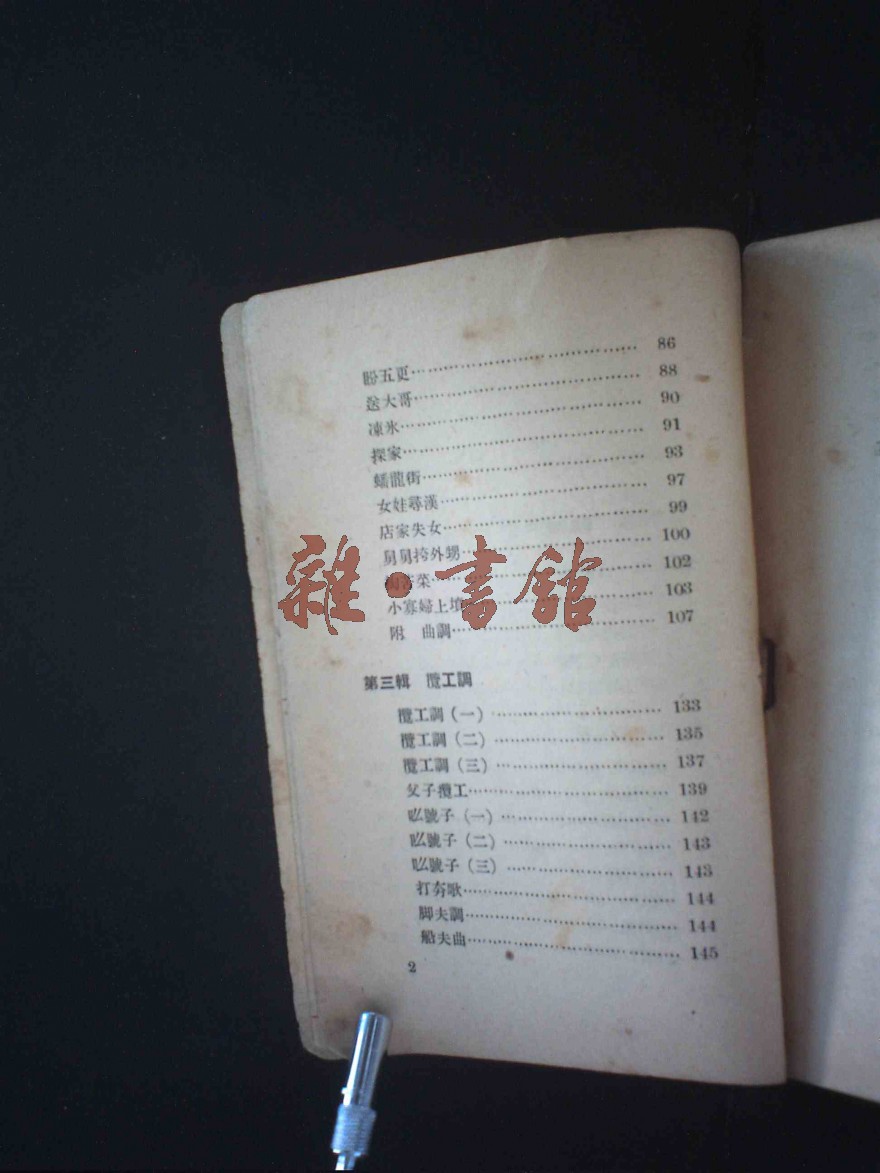 盼五更 86
送大哥 88
凍氷 90
探家 91
蟠龍街 93
女娃尋漢 97
店家失女 99
舅舅挎外甥 100
苦菜 102
小寡婦上墳 103
附 曲調 107
第三輯 攬工調
攬工調(一) 133
攬工調(二) 135
攬工調(三) 137
父子攬工 139
吆號子(一) 142
吆號子(二) 143
吆號子(三) 143
打夯歌 144
脚夫調 144
船夫曲 145
2
雜·書館